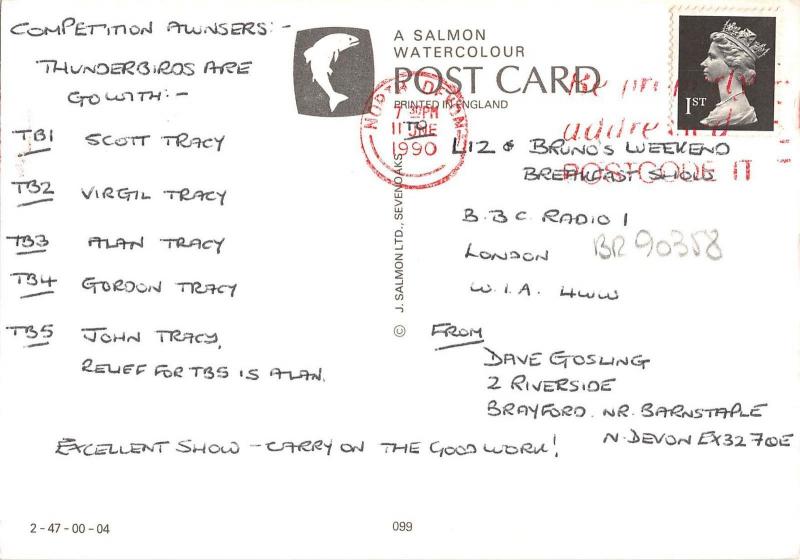 COMPETITION AWNSERS:-
THUNDERBIRDS ARE
GO WITH:-
TB1 SCOTT TRACY
TB2 VIRGIL TRACY
TB3 ALAN TRACY
TB4 GORDON TRACY
TB5 JOHN TRACY,
RELIEF FOR TB5 IS ALAN.
EXCELLENT SHOW - CARRY ON THE GOOD WORK!
2-47-00-04
099
© J. SALMON LTD., SEVENOAKS
A SALMON
WATERCOLOUR
POST CARD
PRINTED IN ENGLAND
NORTH DEVON
7 30PM
11 JNE
1990
1ST
Be properly
addressed
POSTCODE IT
TO
LIZ & BRUNO'S WEEKEND
BREAKFAST SHOW
B.B.C RADIO 1
LONDON
W.1.A. 4WW
BR 90358
FROM
DAVE GOSLING
2 RIVERSIDE
BRAYFORD. NR. BARNSTAPLE
N. DEVON EX32 7QE